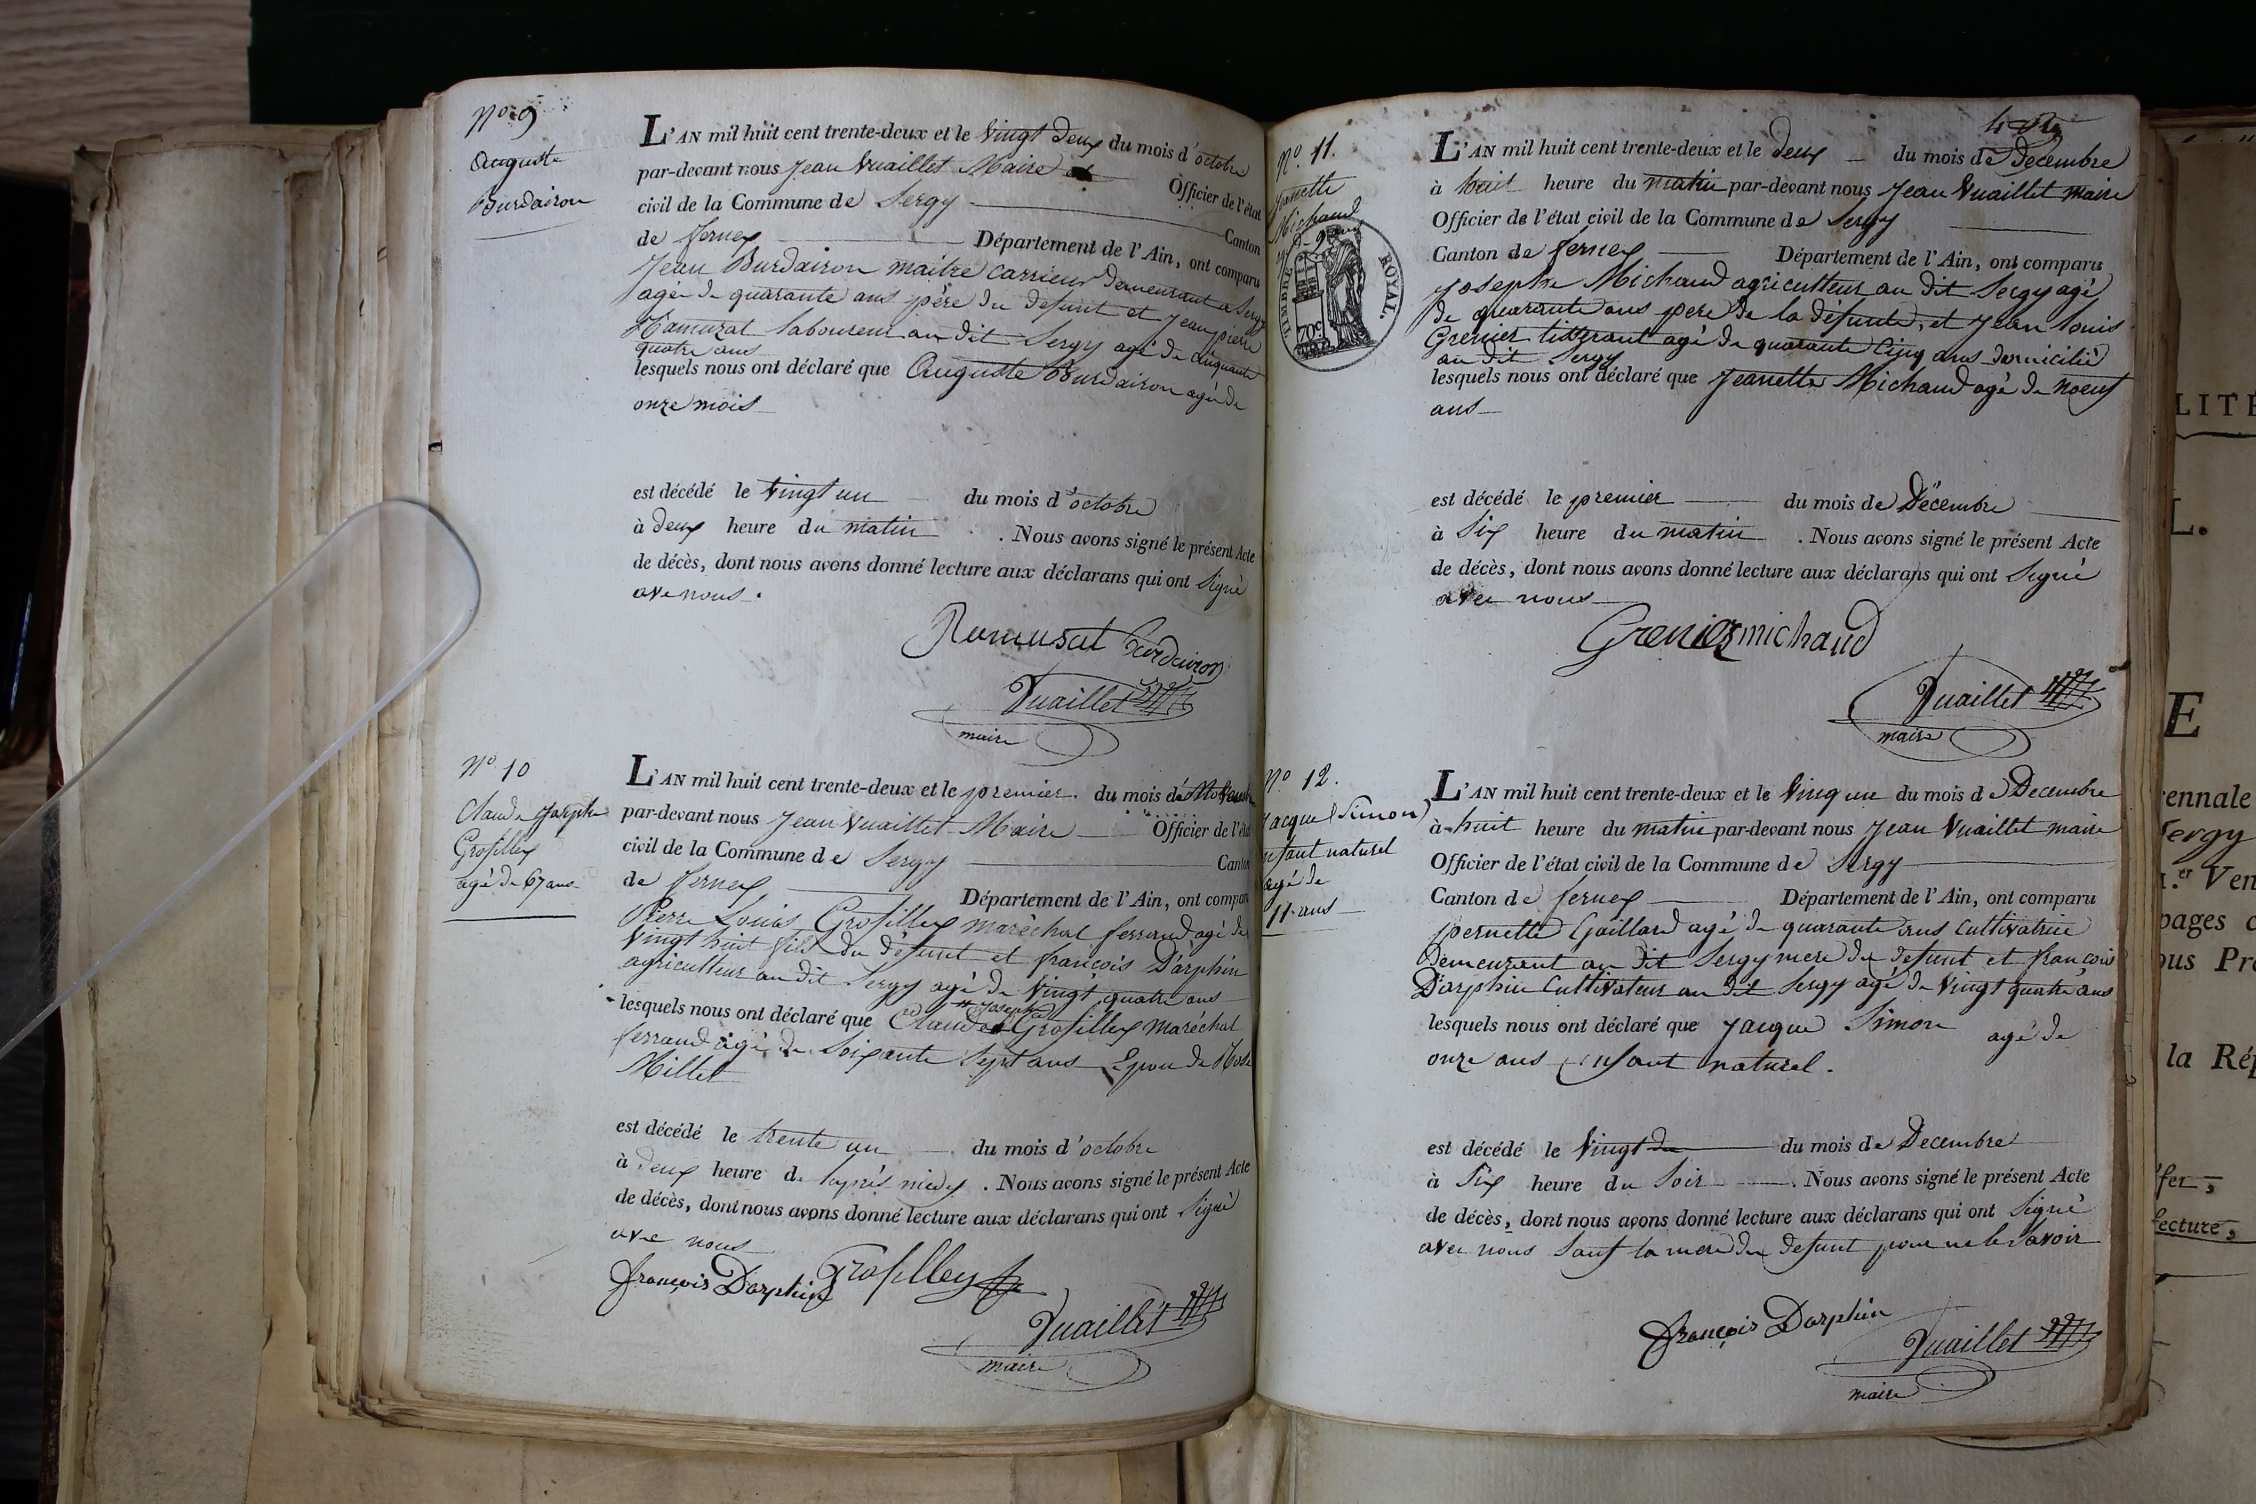 N.o 9
Auguste
Burdairon
L'AN mil huit cent trente-deux et le vingt deux du mois d'octobre
par-devant nous Jean Vuaillet Maire Officier de l'état
civil de la Commune de Sergy Canton
de fernex Département de l'Ain, ont comparu
Jean Burdairon maitre carrieur demeurant a Sergy
agé de quarante ans père du defunt et Jean pierre
Ramuzat laboureur au dit Sergy agé de cinquante
quatre ans
lesquels nous ont déclaré que Auguste Burdairon agé de
onze mois
est décédé le vingt un du mois d'octobre
à deux heure du matin . Nous avons signé le présent Acte
de décès, dont nous avons donné lecture aux déclarans qui ont Signé
ave nous.
Ramusat Burdairon
Vuaillet
maire
N.o 10
Claude Joseph
Grosilley
agé de 67 ans
L'AN mil huit cent trente-deux et le premier du mois de Novembre
par-devant nous Jean Vuaillet Maire Officier de l'état
civil de la Commune de Sergy Canton
de fernex Département de l'Ain, ont comparu
Pierre Louis Grosilley maréchal ferrand agé de
vingt huit fils du défunt et françois Darphin
agriculteur au dit Sergy agé de vingt quatre ans
et Joseph
lesquels nous ont déclaré que Claude Grosilley maréchal
ferrand agé de Soixante Sept ans Epou de Rose
Millet
est décédé le trente un du mois d'octobre
à deux heure de laprés midy . Nous avons signé le présent Acte
de décès, dont nous avons donné lecture aux déclarans qui ont Signé
ave nous
françois Darphin Grosilley
Vuaillet
maire
N.o 11.
Janette
Michaud
9
TIMBRE ROYAL.
70c
L'AN mil huit cent trente-deux et le deux du mois de Decembre
à huit heure du matin par-devant nous Jean Vuaillet maire
Officier de l'état civil de la Commune de Sergy
Canton de fernex Département de l'Ain, ont comparu
Josephe Michaud agriculteur au dit Sergy agé
de quarante ans pere de la défunte, et Jean louis
Grenier tisserant agé de quarante cinq ans domicilié
au dit Sergy
lesquels nous ont déclaré que Jeanette Michaud agé de noeuf
ans
est décédé le premier du mois de Décembre
à Six heure du matin . Nous avons signé le présent Acte
de décès, dont nous avons donné lecture aux déclarans qui ont Signé
avec nous
Grenier michaud
Vuaillet
maire
N.o 12.
Jacque (Simon)
enfant naturel
agé de
11 ans
L'AN mil huit cent trente-deux et le vingt un du mois de Decembre
à huit heure du matin par-devant nous Jean Vuaillet maire
Officier de l'état civil de la Commune de Sergy
Canton de fernex Département de l'Ain, ont comparu
pernette Gaillard agé de quarante ans Cultivatrice
demeurant au dit Sergy mere du defunt et françois
Darphin Cultivateur au dit Sergy agé de vingt quatre ans
lesquels nous ont déclaré que Jacque Simon agé de
onze ans enfant naturel.
est décédé le vingt du mois de Decembre
à Six heure du Soir . Nous avons signé le présent Acte
de décès, dont nous avons donné lecture aux déclarans qui ont Signé
avec nous Sauf la mere du defunt pour ne le Savoir
françois Darphin
Vuaillet
maire
LITÉ
L.
E
ennale
Sergy
er Ven
pages
ous Pr
la Rép
fer,
lecture,